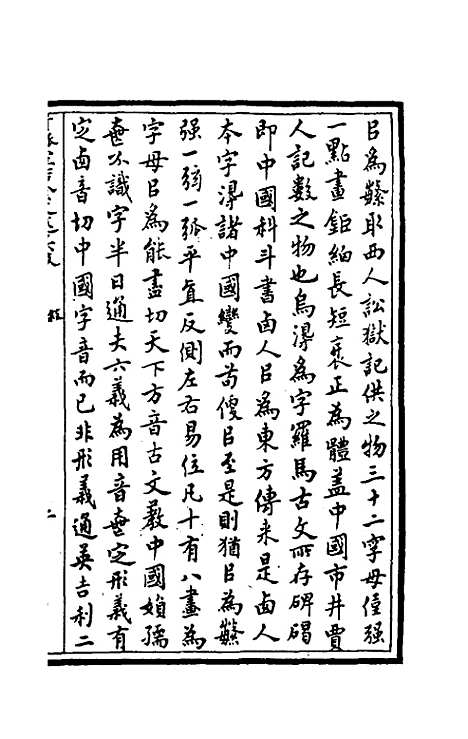 㠯為䋣取西人訟獄記供之物三十二字母僅强
一點畫鉅細長短衺正為體盖中國市井賈
人記數之物也烏得為字羅馬古文所存碑碣
即中國科斗書卤人㠯為東方傳来是卤人
本字得諸中國變而苟㑰㠯至是則猶㠯為䋣
强一弱一弧平直反側左右易位凡十有八畫為
字母㠯為能盡切天下方音古文教中國嬾孺
不識字半日通夫六義為用音定形義有
定卤音切中國字音而已非形義通英吉利二